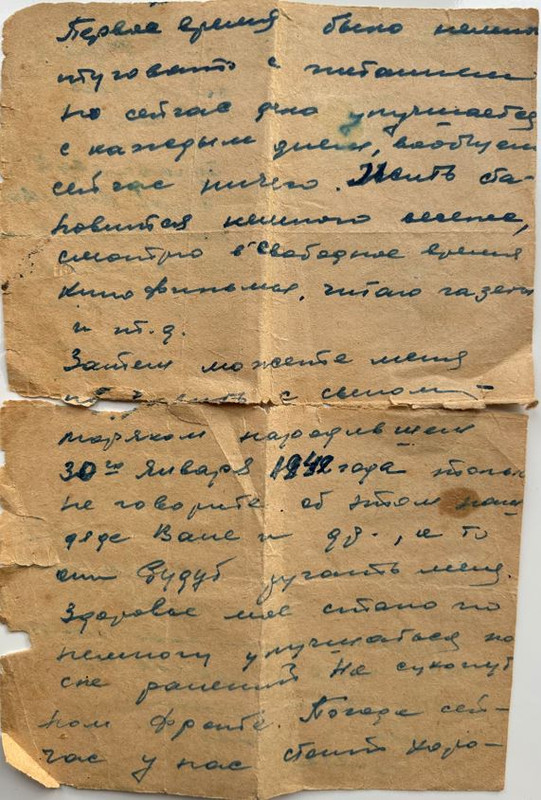 Первое время было немно
туговато с питанием
но сейчас дно улучшается
с каждым днем, вообщем
сейчас ничего. Жить ста-
новится немного веселе,
смотрю в свободное время
кинофильмы, читаю газеты
и т.д.
Затем можете меня
с сыном-
моряком народившем
30го января 1942 года только
не говорите об этом
дяде Ване и др., а то
они будут ругать меня.
Здоровье мое стало по
немногу улучшаться по
сле ранений На сухопут
ном фронте. Погода сей-
час у нас стоит хоро-